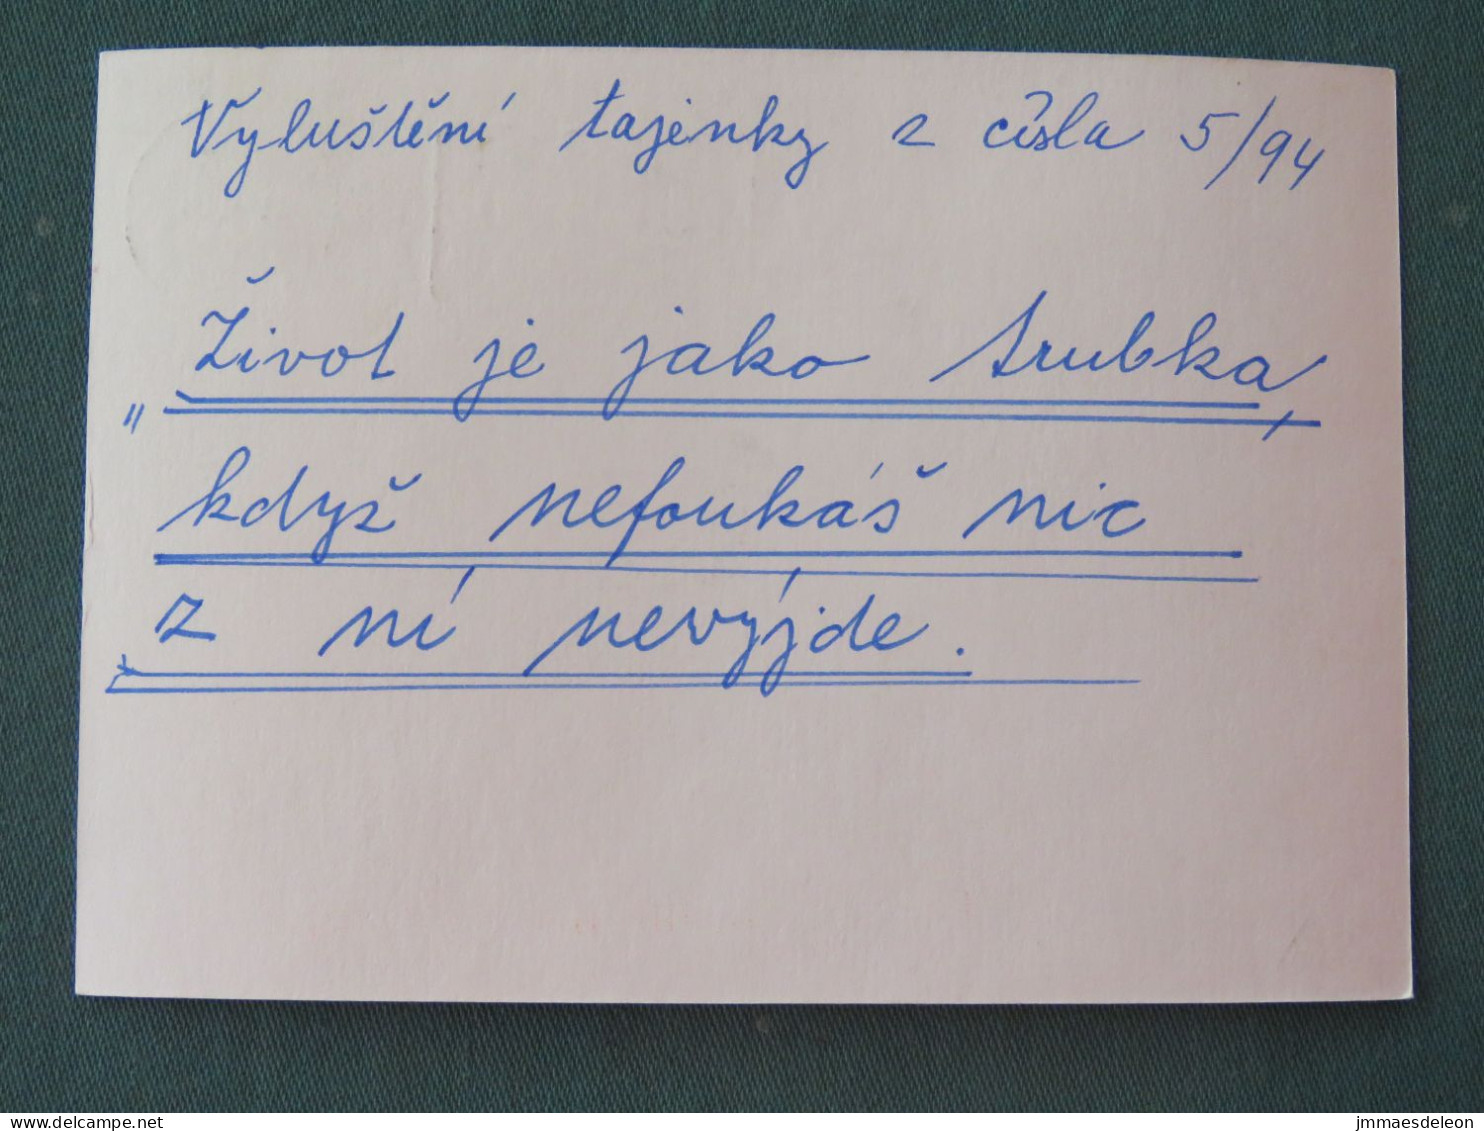 Vyluštění tajenky z čísla 5/94
„Život je jako trubka,
když nefoukáš nic
z ní nevýjde.
delcampe.net
jmmaesdeleon